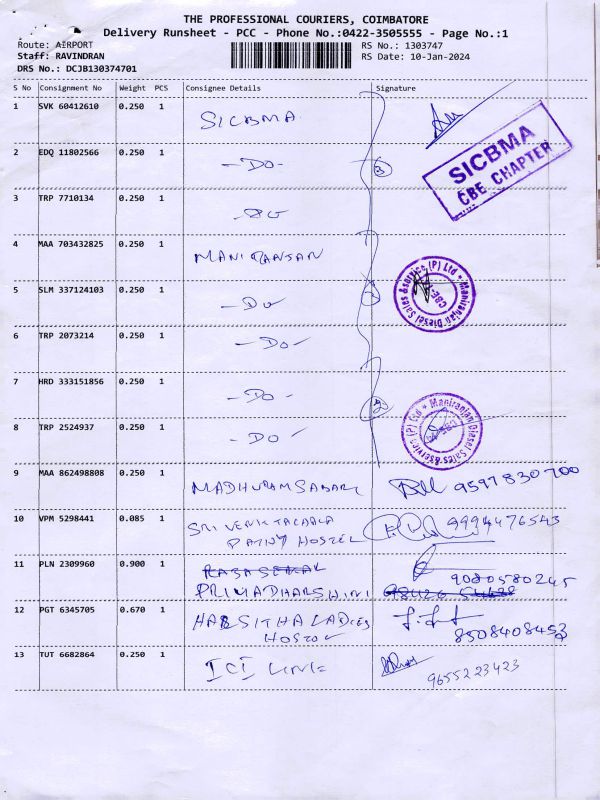 THE PROFESSIONAL COURIERS, COIMBATORE
Delivery Runsheet - PCC - Phone No.:0422-3505555 - Page No.:1
Route: AIRPORT
RS No.: 1303747
Staff: RAVINDRAN
RS Date: 10-Jan-2024
DRS No.: DCJB130374701
S No Consignment No Weight PCS Consignee Details Signature
1 SVK 60412610 0.250 1 SICBMA
SICBMA
CBE CHAPTER
2 EDQ 11802566 0.250 1 -DO- 3
3 TRP 7710134 0.250 1
4 MAA 703432825 0.250 1 MANIRANSAN
5 SLM 337124103 0.250 1 -DO-
Maniranjan Diesel Sales & Service (P) Ltd
CBE
6 TRP 2073214 0.250 1 -DO-
7 HRD 333151856 0.250 1 -DO- 2
8 TRP 2524937 0.250 1 -DO-
Maniranjan Diesel Sales & Service (P) Ltd
9 MAA 862498808 0.250 1 MADHURAM 9597830700
10 VPM 5298441 0.085 1 SRI VENKTACHALA
PATHY HOSTEL 9994476543
11 PLN 2309960 0.900 1
PRIMADHARSHINI 9080580245
12 PGT 6345705 0.670 1 HARSITHA LADIES
HOSTEL 8508408453
13 TUT 6682864 0.250 1 ICI LINK 9655223423